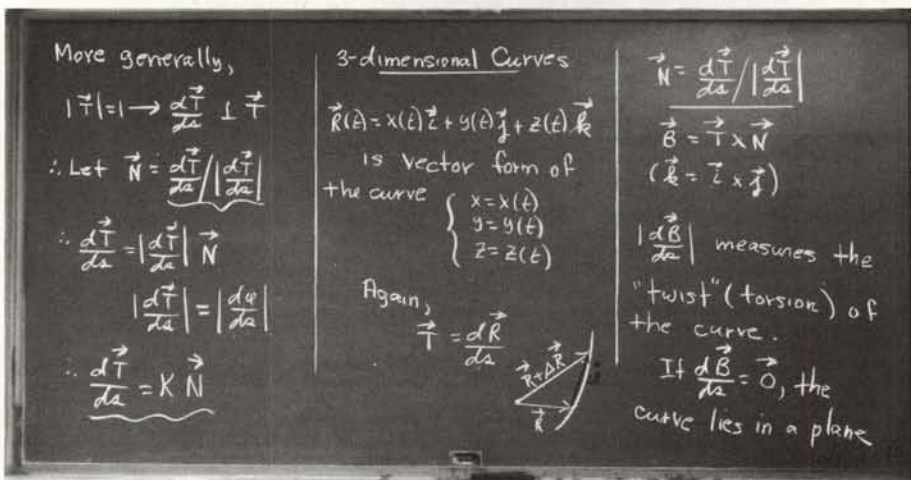 More generally,
|T⃗|=1 → dT⃗/ds ⊥ T⃗
∴ Let N⃗ = dT⃗/ds / |dT⃗/ds|
∴ dT⃗/ds = |dT⃗/ds| N⃗
|dT⃗/ds| = |dφ/ds|
∴ dT⃗/ds = K N⃗
3-dimensional Curves
R⃗(t) = x(t) i⃗ + y(t) j⃗ + z(t) k⃗
is vector form of
the curve
{ x = x(t)
y = y(t)
z = z(t)
Again,
T⃗ = dR⃗/ds
R⃗+ΔR⃗
R⃗
N⃗ = dT⃗/ds / |dT⃗/ds|
B⃗ = T⃗ × N⃗
(k⃗ = i⃗ × j⃗)
|dB⃗/ds| measures the
"twist" (torsion) of
the curve.
If dB⃗/ds = 0⃗, the
curve lies in a plane